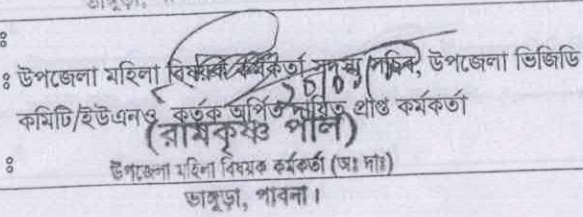 ঃ
ঃ উপজেলা মহিলা বিষয়ক কর্মকর্তা সদস্য সচিব, উপজেলা ভিজিডি
কমিটি/ইউএনও কর্তৃক অর্পিত দায়িত্ব প্রাপ্ত কর্মকর্তা
(রামকৃষ্ণ পাল)
ঃ উপজেলা মহিলা বিষয়ক কর্মকর্তা (অঃ দাঃ)
ভাঙ্গুড়া, পাবনা।